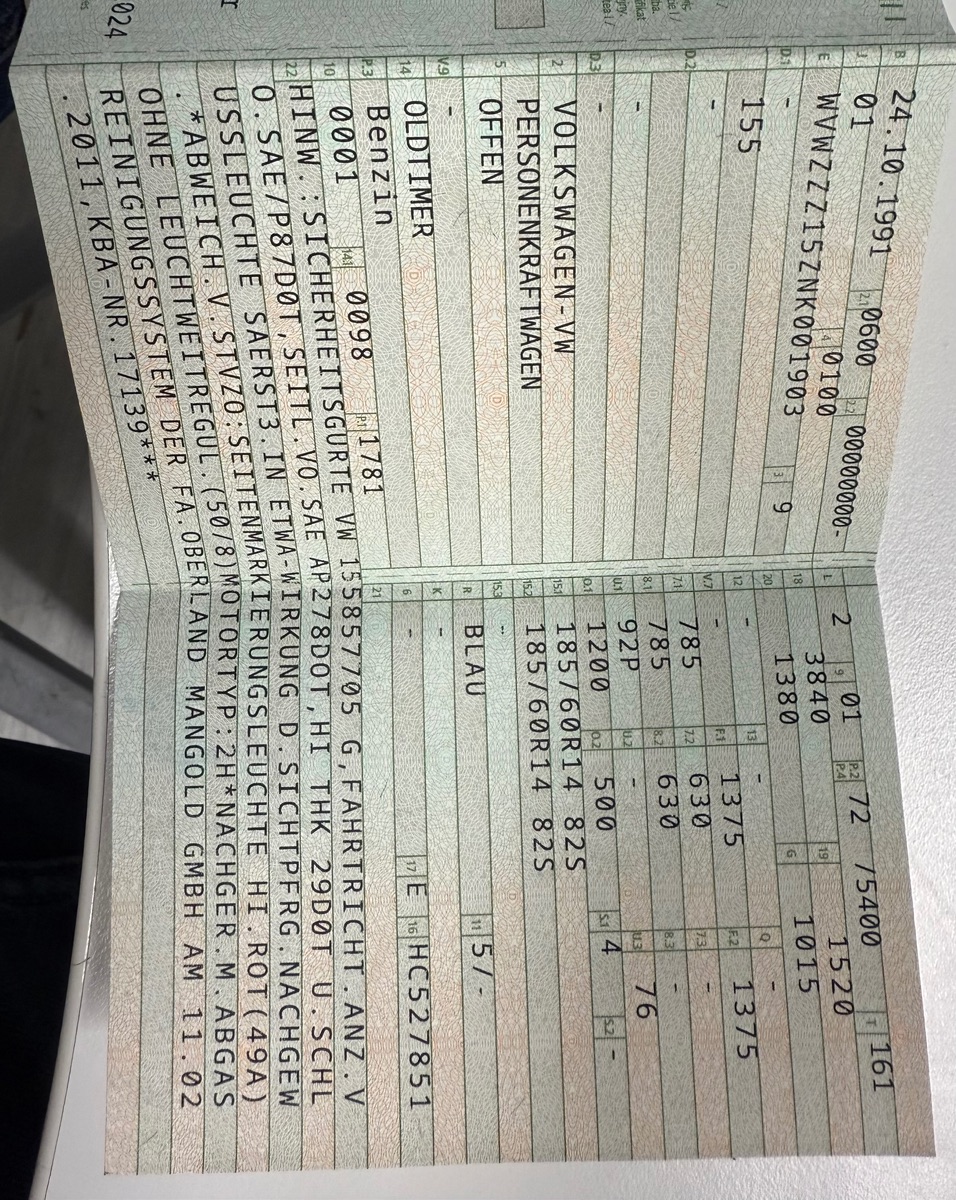 B 24.10.1991 2.1 0600 2.2 00000000-
J 01 4 0100
E WVWZZZ15ZNK001903 3 9
D.1 -
155
D.2 -
-
D.3 -
2 VOLKSWAGEN-VW
PERSONENKRAFTWAGEN
5 OFFEN
V.9 -
14 OLDTIMER
P.3 Benzin
10 0001 14.1 0098 P.1 1781
L 2 9 01 P.2 P.4 72 /5400 T 161
18 3840 19 1520
20 1380 G 1015
12 - 13 - Q -
V.7 - F.1 1375 F.2 1375
7.1 785 7.2 630 7.3 -
8.1 785 8.2 630 8.3 -
U.1 92P U.2 - U.3 76
O.1 1200 O.2 500 S.1 4 S.2 -
15.1 185/60R14 82S
15.2 185/60R14 82S
15.3 -
R BLAU 11 5/-
K -
6 - 17 E 16 HC527851
21
22 HINW.:SICHERHEITSGURTE VW 155857705 G,FAHRTRICHT.ANZ.V
O.SAE/P87DOT,SEITL.VO.SAE AP278DOT,HI THK 29DOT U.SCHL
USSLEUCHTE SAERST3.IN ETWA-WIRKUNG D.SICHTPFRG.NACHGEW
.*ABWEICH.V.STVZO:SEITENMARKIERUNGSLEUCHTE HI.ROT(49A)
OHNE LEUCHTWEITREGUL.(50/8)MOTORTYP:2H*NACHGER.M.ABGAS
REINIGUNGSSYSTEM DER FA.OBERLAND MANGOLD GMBH AM 11.02
.2011,KBA-NR.17139***
024